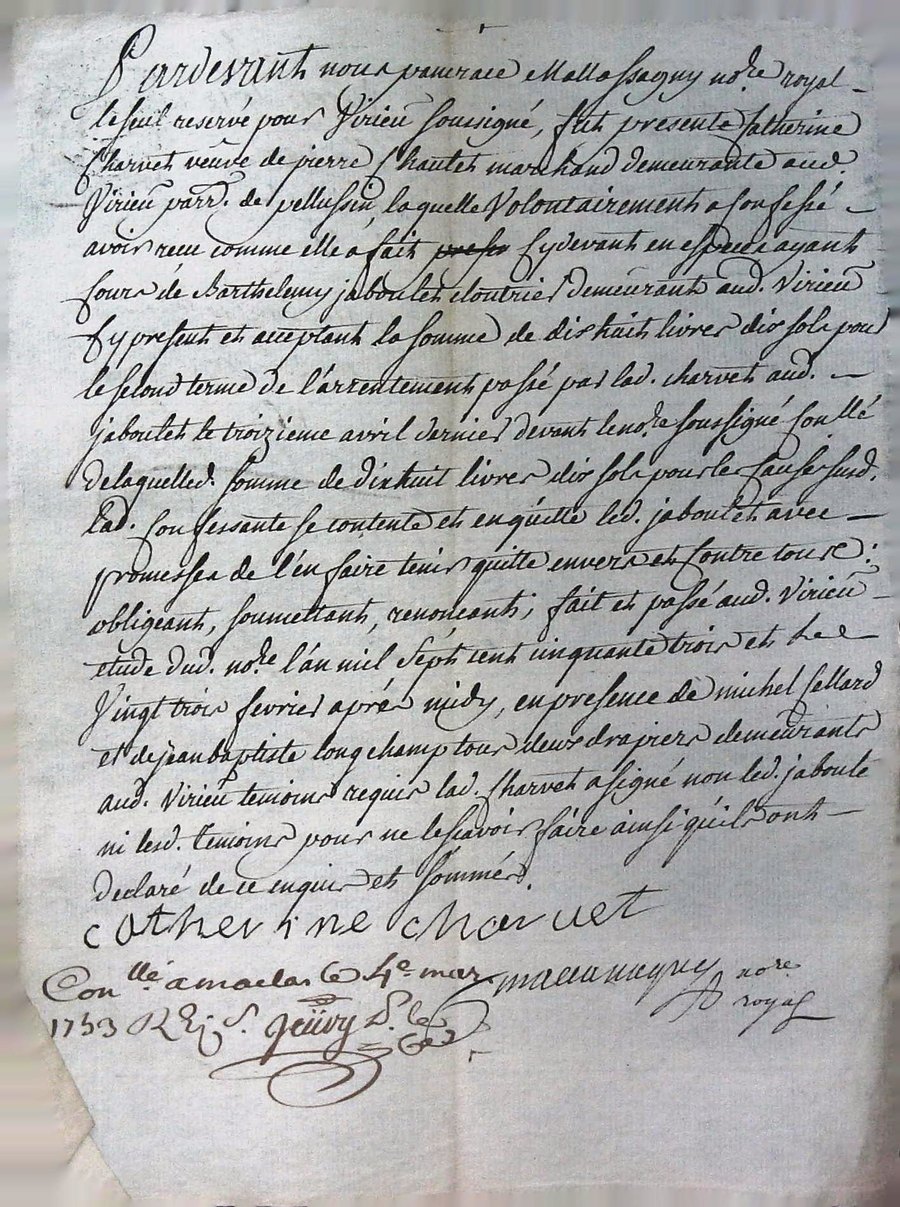 Pardevant nous pancrace Mallassagny no.re royal
le seul reservé pour Virieu soussigné, fut presente Catherine
Charvet veuve de pierre Chautet marchand demeurante aud.
Virieu parr. de pellussin, laquelle Volontairement a confessé
avoir recu comme elle a fait cydevant en espece ayant
cours de Barthelemy jaboulet cloutrier demeurant aud. Virieu
cy present et acceptant la somme de dix huit livres dix sols pour
le second terme de l'arrentement passé par lad. charvet aud.
jaboulet le troizieme avril dernier devant le no.re soussigné Con.llé
de laquelled. somme de dixhuit livres dix sols pour les causes susd.
lad. Confessante se contente et en quitte led. jaboulet avec
promesses de l'en faire tenir quitte envers et contre tous :
obligeant, soumettant, renoncant ; fait et passé aud. Virieu
etude dud. no.re l'an mil sept cent cinquante trois et le
Vingt trois fevrier aprés midy, en presence de michel Cellard
et de jean baptiste longchamp tous deux drapiers demeurants
aud. Virieu temoins requis lad. Charvet a signé non led. jaboulet
ni lesd. temoins pour ne le scavoir faire ainsi qu'ils ont
declaré de ce enquis et sommés.
catherine charvet
Con.llé a maclas le 4e mar
1753 R Ej S. jeüvy
no.re
royal